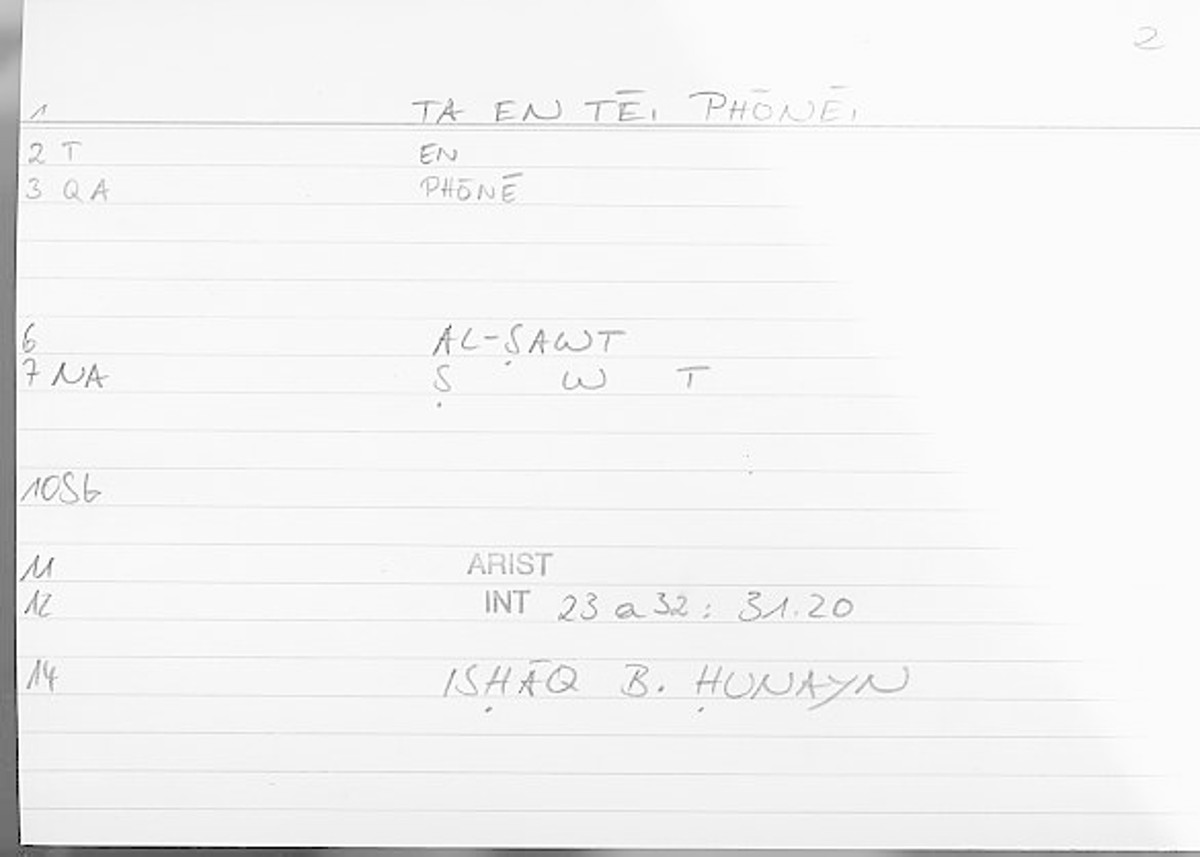 2
1 TA EN TĒI PHŌNĒI
2 T EN
3 QA PHŌNĒ
6 AL-ṢAWT
7 NA Ṣ W T
10Sb
11 ARIST
12 INT 23 a 32 : 31.20
14 ISḤĀQ B. ḤUNAYN